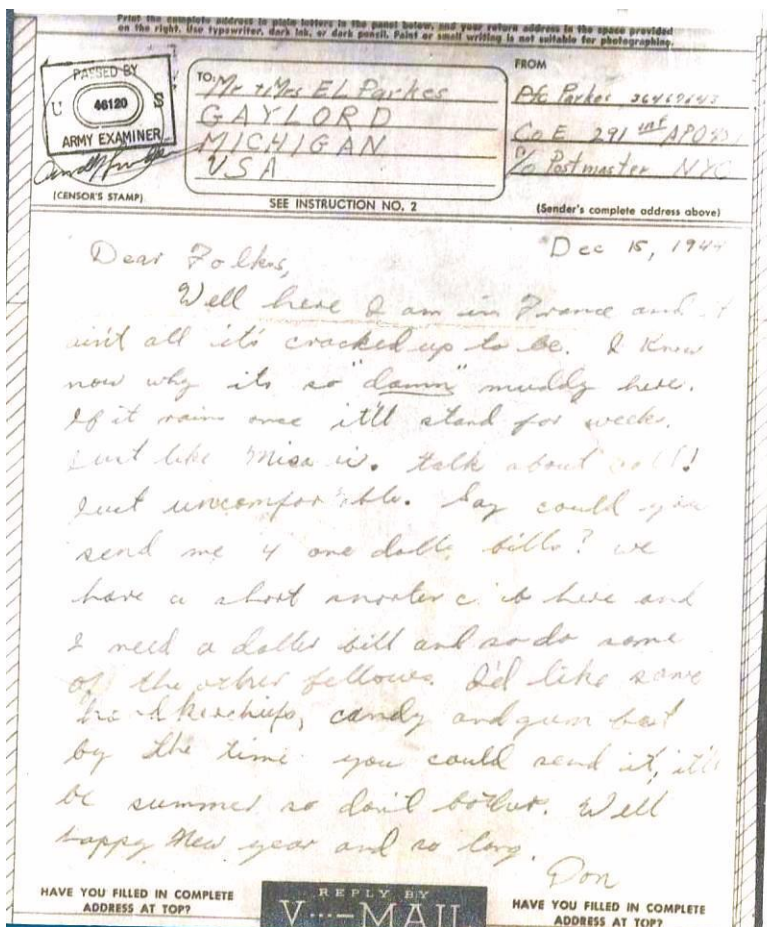 Print the complete address in plain letters in the panel below, and your return address in the space provided
on the right. Use typewriter, dark ink, or dark pencil. Faint or small writing is not suitable for photographing.
PASSED BY
U 46120 S
ARMY EXAMINER
(CENSOR'S STAMP)
TO: Mr & Mrs E L Parkes
GAYLORD
MICHIGAN
USA
SEE INSTRUCTION NO. 2
FROM
Pfc Parkes
Co E 291 inf APO
c/o Postmaster NYC
(Sender's complete address above)
Dec 15, 1944
Dear Folkes,
Well here I am in France and it
ain't all it's cracked up to be. I know
now why its so "damn" muddy here.
If it rains once it'll stand for weeks.
Just like is. talk about cold!
Just uncomfortable. Say could you
send me 4 one dollar bills? we
have a short snorter club here and
I need a doller bill and so do some
of the other fellows. I'd like some
handkerchiefs, candy and gum but
by the time you could send it, it'll
be summer so don't bother. Well
happy New year and so long.
Don
HAVE YOU FILLED IN COMPLETE
ADDRESS AT TOP?
REPLY BY
V···—MAIL
HAVE YOU FILLED IN COMPLETE
ADDRESS AT TOP?